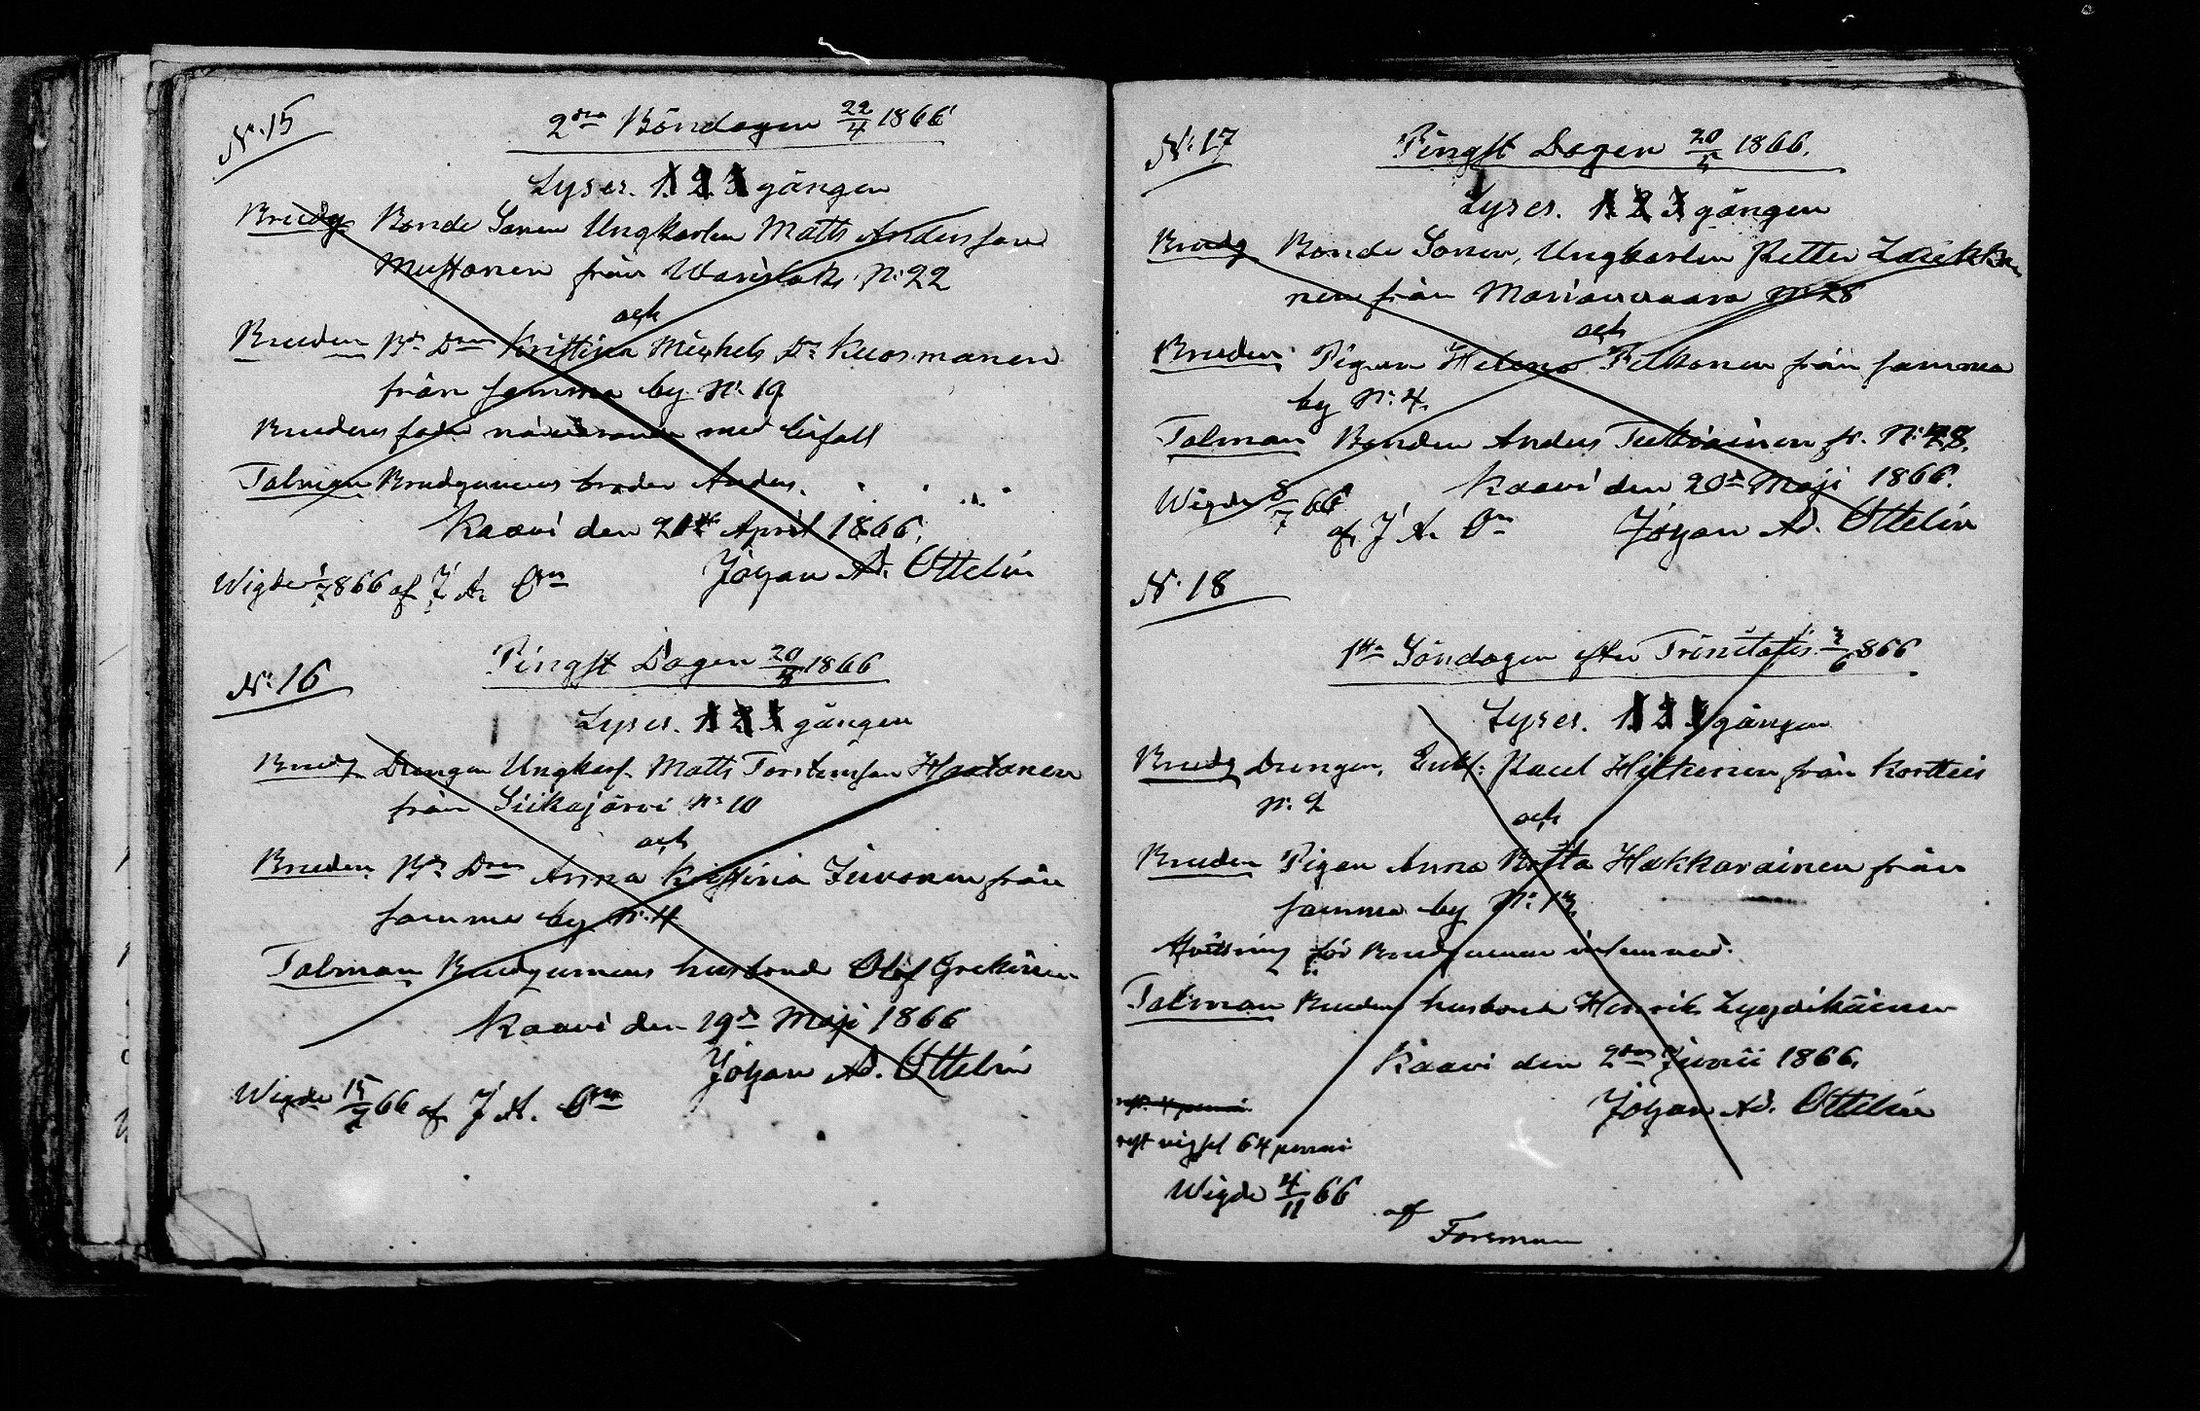 N:15
2dra Böndagen 22/4 1866
Lyses. 1 2 3 gången
Brudg Bonde Sonen Ungkarlen Matts Andersson
Mustonen från Warislaks N:22
och
Bruden Bd. Drn Kristina Michels Dr Kuosmanen
från samma by N:19
Brudens fader närvarande med bifall
Talman Brudgumens broder Anders.
Kaavi den 21st April 1866.
Johan Ad. Ottelin
Wigde 1/7 866 af J. A. On
N:16
Pingst Dagen 20/5 1866
Lyses. 1 2 3 gången
Brudg Drengen Ungkarl. Matts Torstensson Hartonen
från Siikajärvi N:10
och
Bruden Bd. Drn Anna Kristina Juvonen från
samma by N:4
Talman Brudgumens husbonde Olof
Kaavi den 19de Maji 1866
Johan Ad. Ottelin
Wigde 15/7 66 af J. A. On
N:17
Pingst Dagen 20/5 1866.
Lyses. 1 2 3 gången
Brudg Bonde Sonen, Ungkarlen Petter
nen från Marianvaara N:28
och
Bruden Pigan Helena Pelkonen från samma
by N:4.
Talman Bonden Anders fr. N:28.
Kaavi den 20de Maji 1866.
Wigde 8/7 66
af J. A. On
Johan Ad. Ottelin
N:18
1sta Söndagen efter Trinitatis 3/6 866
Lyses. 1 2 3 gången
Brudg Drengen, Enkl: Paul Hiltunen från Kortteis
N:2
och
Bruden Pigan Anna Britta Hakkarainen från
samma by N:13
Afvittring för Brudgumen inlemnad.
Talman Brudens husbonde Henrik
Kaavi den 2dra Junii 1866.
Johan Ad. Ottelin
rest vigsel 64 penni
Wigde 4/11 66
af
Forsman